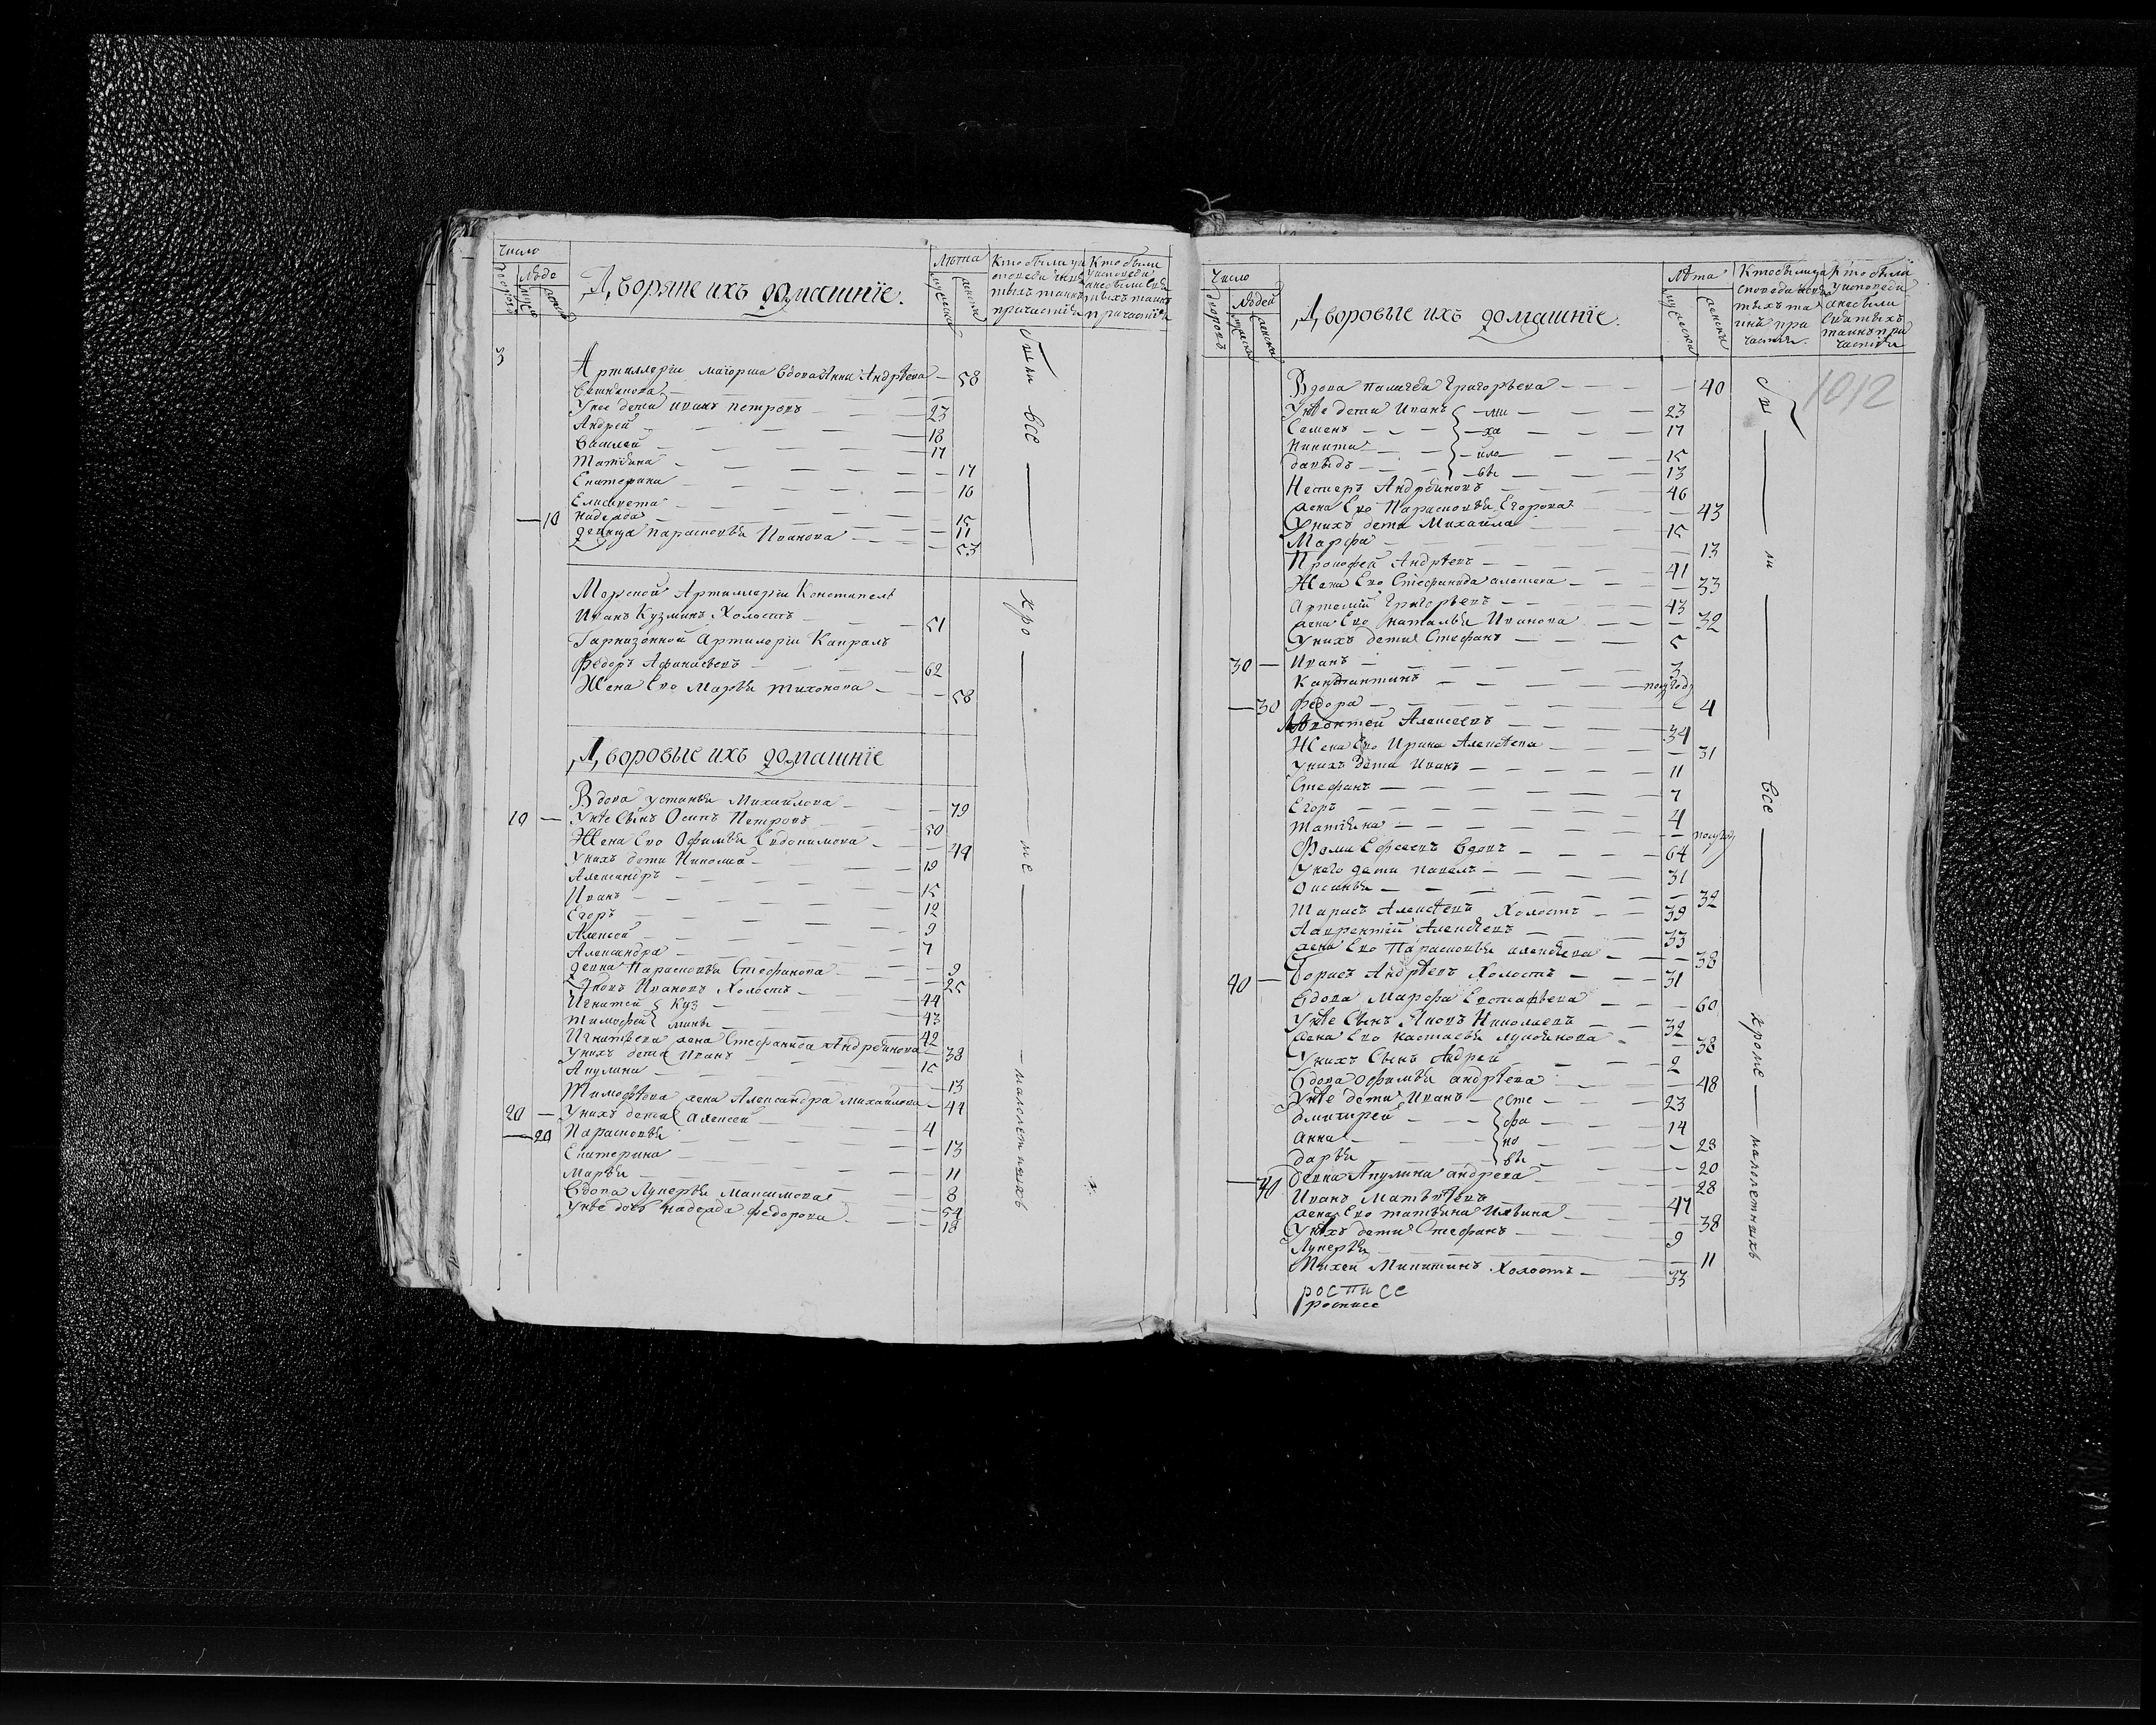 Число
Людей
Дворяне ихъ домашніе.
Лѣта
мужеска
женска
Кто были у и
споведи и свя
тыхъ таинъ
причастія
Кто были
у исповеди
а не были свя
тыхъ таинъ
причастія
Артиллеріи маіорша вдова Анна Андрѣева — 58
У нее дети Иванъ Петровъ — 23
Андрей — 18
Василей — 17
Татіяна — 17
Екатерина — 16
Елисавета — 15
— 10 Надежда — 11
девица Парасковья Иванова — 53
Морской Артиллеріи Констапель
Иванъ Кузминъ Холостъ — 51
Гарнизонной Артилоріи Капралъ
Федоръ Афанасьевъ — 62
Жена Ево Марья Тихонова — 58
Дворовые ихъ домашніе
Вдова устинья Михайлова — 79
10 — У нѣе Сынъ Осипъ Петровъ — 50
Жена Ево Офимья Евдокимова — 49
У нихъ дети Никола — 19
Александръ — 15
Иванъ — 12
Егоръ — 9
Алексей — 7
Александра — 9
девка Парасковья Стефанова — 25
Яковъ Ивановъ Холостъ — 44
Игнатей Куз — 43
Тимофей мины — 42
Игнатьева жена Стефанида Андреинова — 38
У нихъ дети Иванъ — 15
Акулина — 13
Тимофѣева жена Александра Михаилова — 44
20 — У нихъ дети Алексей — 4
— 20 Парасковья — 13
Екатерина — 11
Марья — 8
Вдова Лукерья Максимова — 54
У нѣе дочь Надежда Федорова — 18
были все кроме малолетнихъ
Число
дворовъ
Людей
мужеска
женска
Дворовые ихъ домашніе.
Лѣта
мужеска
женска
Кто были у и
споведи и свя
тыхъ та
инъ при
частія.
Кто были
у исповеди
а не были
святыхъ
таинъ при
частія
1012
Вдова Палагея Григорьева — 40
У нѣе дети Иванъ — ми — 23
Семенъ — ха — 17
Никита — йло — 15
давыдъ — вы — 13
Нестеръ Андреиновъ — 46
жена Ево Парасковья Егорова — 43
У нихъ дети Михаила — 15
Марфа — 13
Прокофей Андрѣевъ — 41
Жена Ево Стефанида — 33
Артемій Григорьевъ — 43
жена Ево Наталья Иванова — 32
У нихъ дети Стефанъ — 5
30 — Иванъ — 3
Канстантинъ — полгоду
— 30 Федора — 4
Леонтей Алексеевъ — 34
Жена Ево Ирина Алексѣева — 31
У нихъ дети Иванъ — 11
Стефанъ — 7
Егоръ — 4
Татіяна — полгоду
Фома Ефсеевъ вдовъ — 64
У него дети Павелъ — 31
Оксинья — 32
Тарасъ Алексѣевъ Холостъ — 39
Лаврентій Алексѣевъ — 33
жена Ево Парасковья Алексѣева — 38
40 — Борисъ Андрѣевъ Холостъ — 31
Вдова Марфа Евстафьева — 60
У нѣе Сынъ Яковъ Николаевъ — 32
жена Ево Настасья — 38
У нихъ Сынъ Андрей — 2
Вдова Офимья андрѣева — 48
У нѣе дети Иванъ — Сте — 23
Дмитрей — фа — 14
Анна — но — 23
дарья — вы — 20
— 40 девка Акулина андреева — 28
Иванъ Матвѣевъ — 47
жена Ево Татьяна Ильина — 38
У нихъ дети Стефанъ — 9
Лукерья — 11
Михей Микитинъ Холостъ — 33
росписе
росписе
были все кроме малолетнихъ